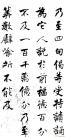 乃至四句偈等受持讀誦
為他人說於前福德百分
不及一百千萬億分乃至
算數譬喻所不能及